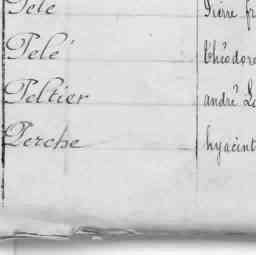 Pelé Pierre
Pelé Théodore
Peltier andré
Perche hyacint